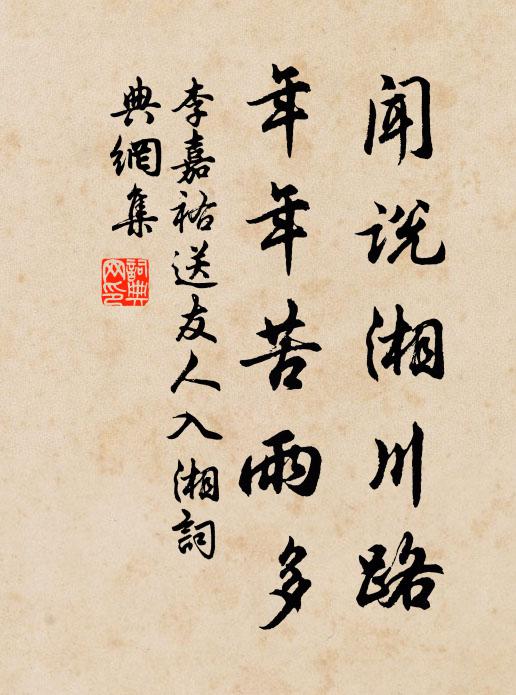 聞說湘川路
年年苦雨多
李嘉祐送友人入湘詞
典網集
詞典
网印